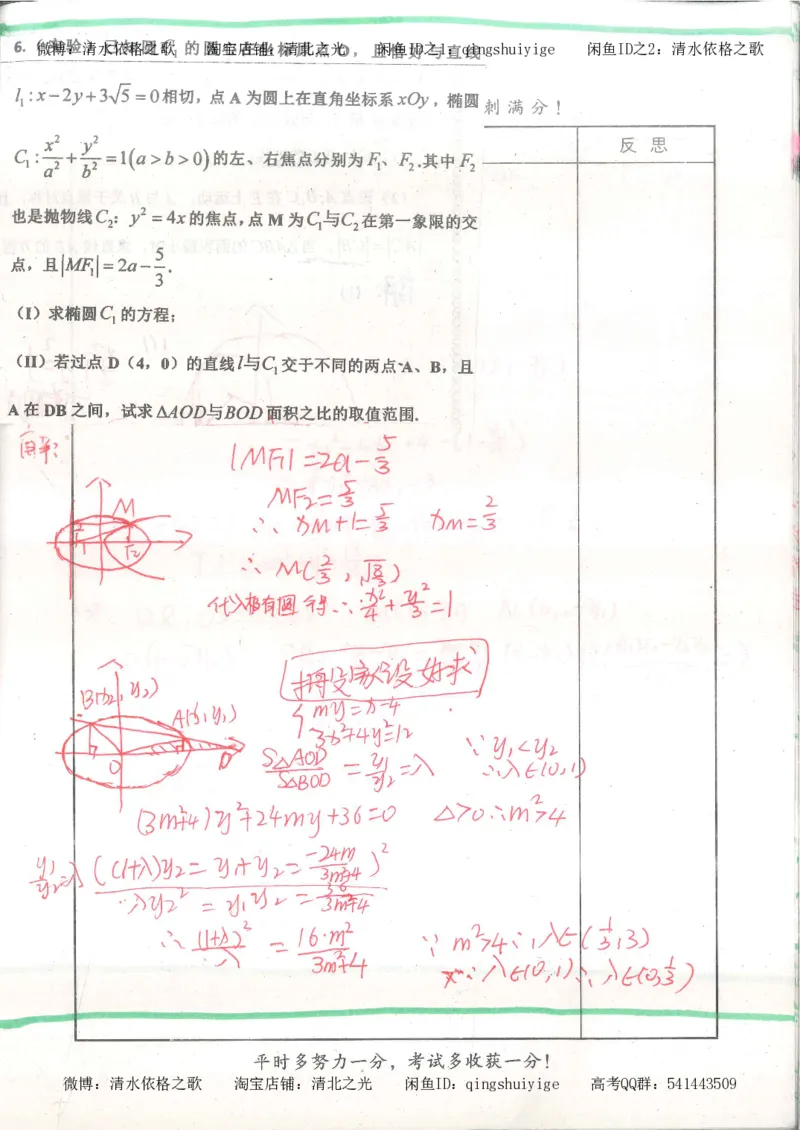 6.
微博：清水依格之歌 淘宝店铺：清北之光 闲鱼ID之1：qingshuiyige 闲鱼ID之2：清水依格之歌
l₁:x−2y+3√5=0相切，点 A 为圆上在直角坐标系xOy，椭圆
刺 满 分！
反 思
C₁: x²/a² + y²/b² =1(a>b>0)的左、右焦点分别为F₁、F₂.其中F₂
也是抛物线C₂：y²=4x的焦点,点 M 为C₁与C₂在第一象限的交
点，且|MF₁|=2a−5/3.
（I）求椭圆C₁的方程；
（II）若过点 D（4，0）的直线l与C₁交于不同的两点A、B，且
A 在 DB 之间，试求ΔAOD与BOD面积之比的取值范围.
|MF1|=2a-5/3
MF2=5/3
∴ xM+1=5/3 xM=2/3
M
F2
代入椭圆得∴ x²/4+y²/3=1
B(x2,y2)
A(x1,y1)
O
D
{my=x-4
3x²+4y²=12
S△AOD/S△BOD = y1/y2=λ
∵y1<y2
∴λ∈(0,1)
(3m²+4)y²+24my+36=0 △>0∴m²>4
y1/y2=λ
((1+λ)y2=y1+y2=-24m/3m²+4)²
λy2²=y1y2=36/3m²+4
∴(1+λ)²/λ=16·m²/3m²+4
∵m²>4∴λ∈(1/3,3)
又∵λ∈(0,1)∴λ∈(
平时多努力一分，考试多收获一分！
微博：清水依格之歌 淘宝店铺：清北之光 闲鱼ID：qingshuiyige 高考QQ群：541443509